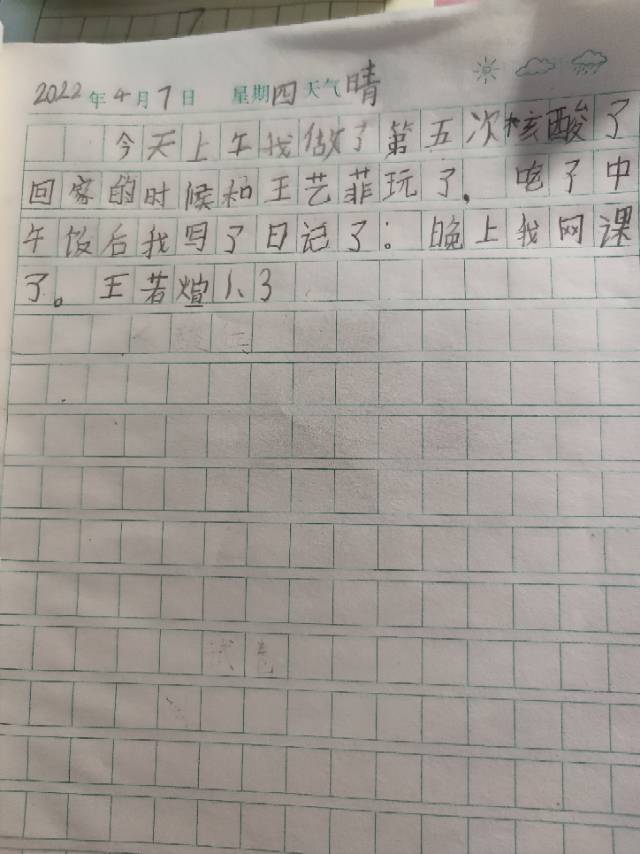 2022年4月7日 星期四天气晴
今天上午我做了第五次核酸了
回家的时候和王艺菲玩了. 吃了中
午饭后我写了日记了。晚上我网课
了。王若煊1、3